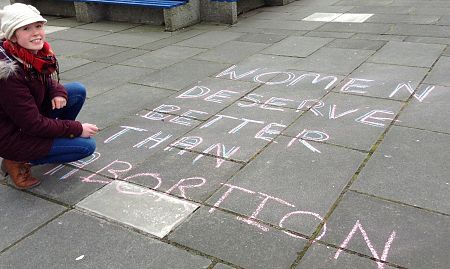 WOMEN
DESERVE
BETTER
THAN
ABORTION